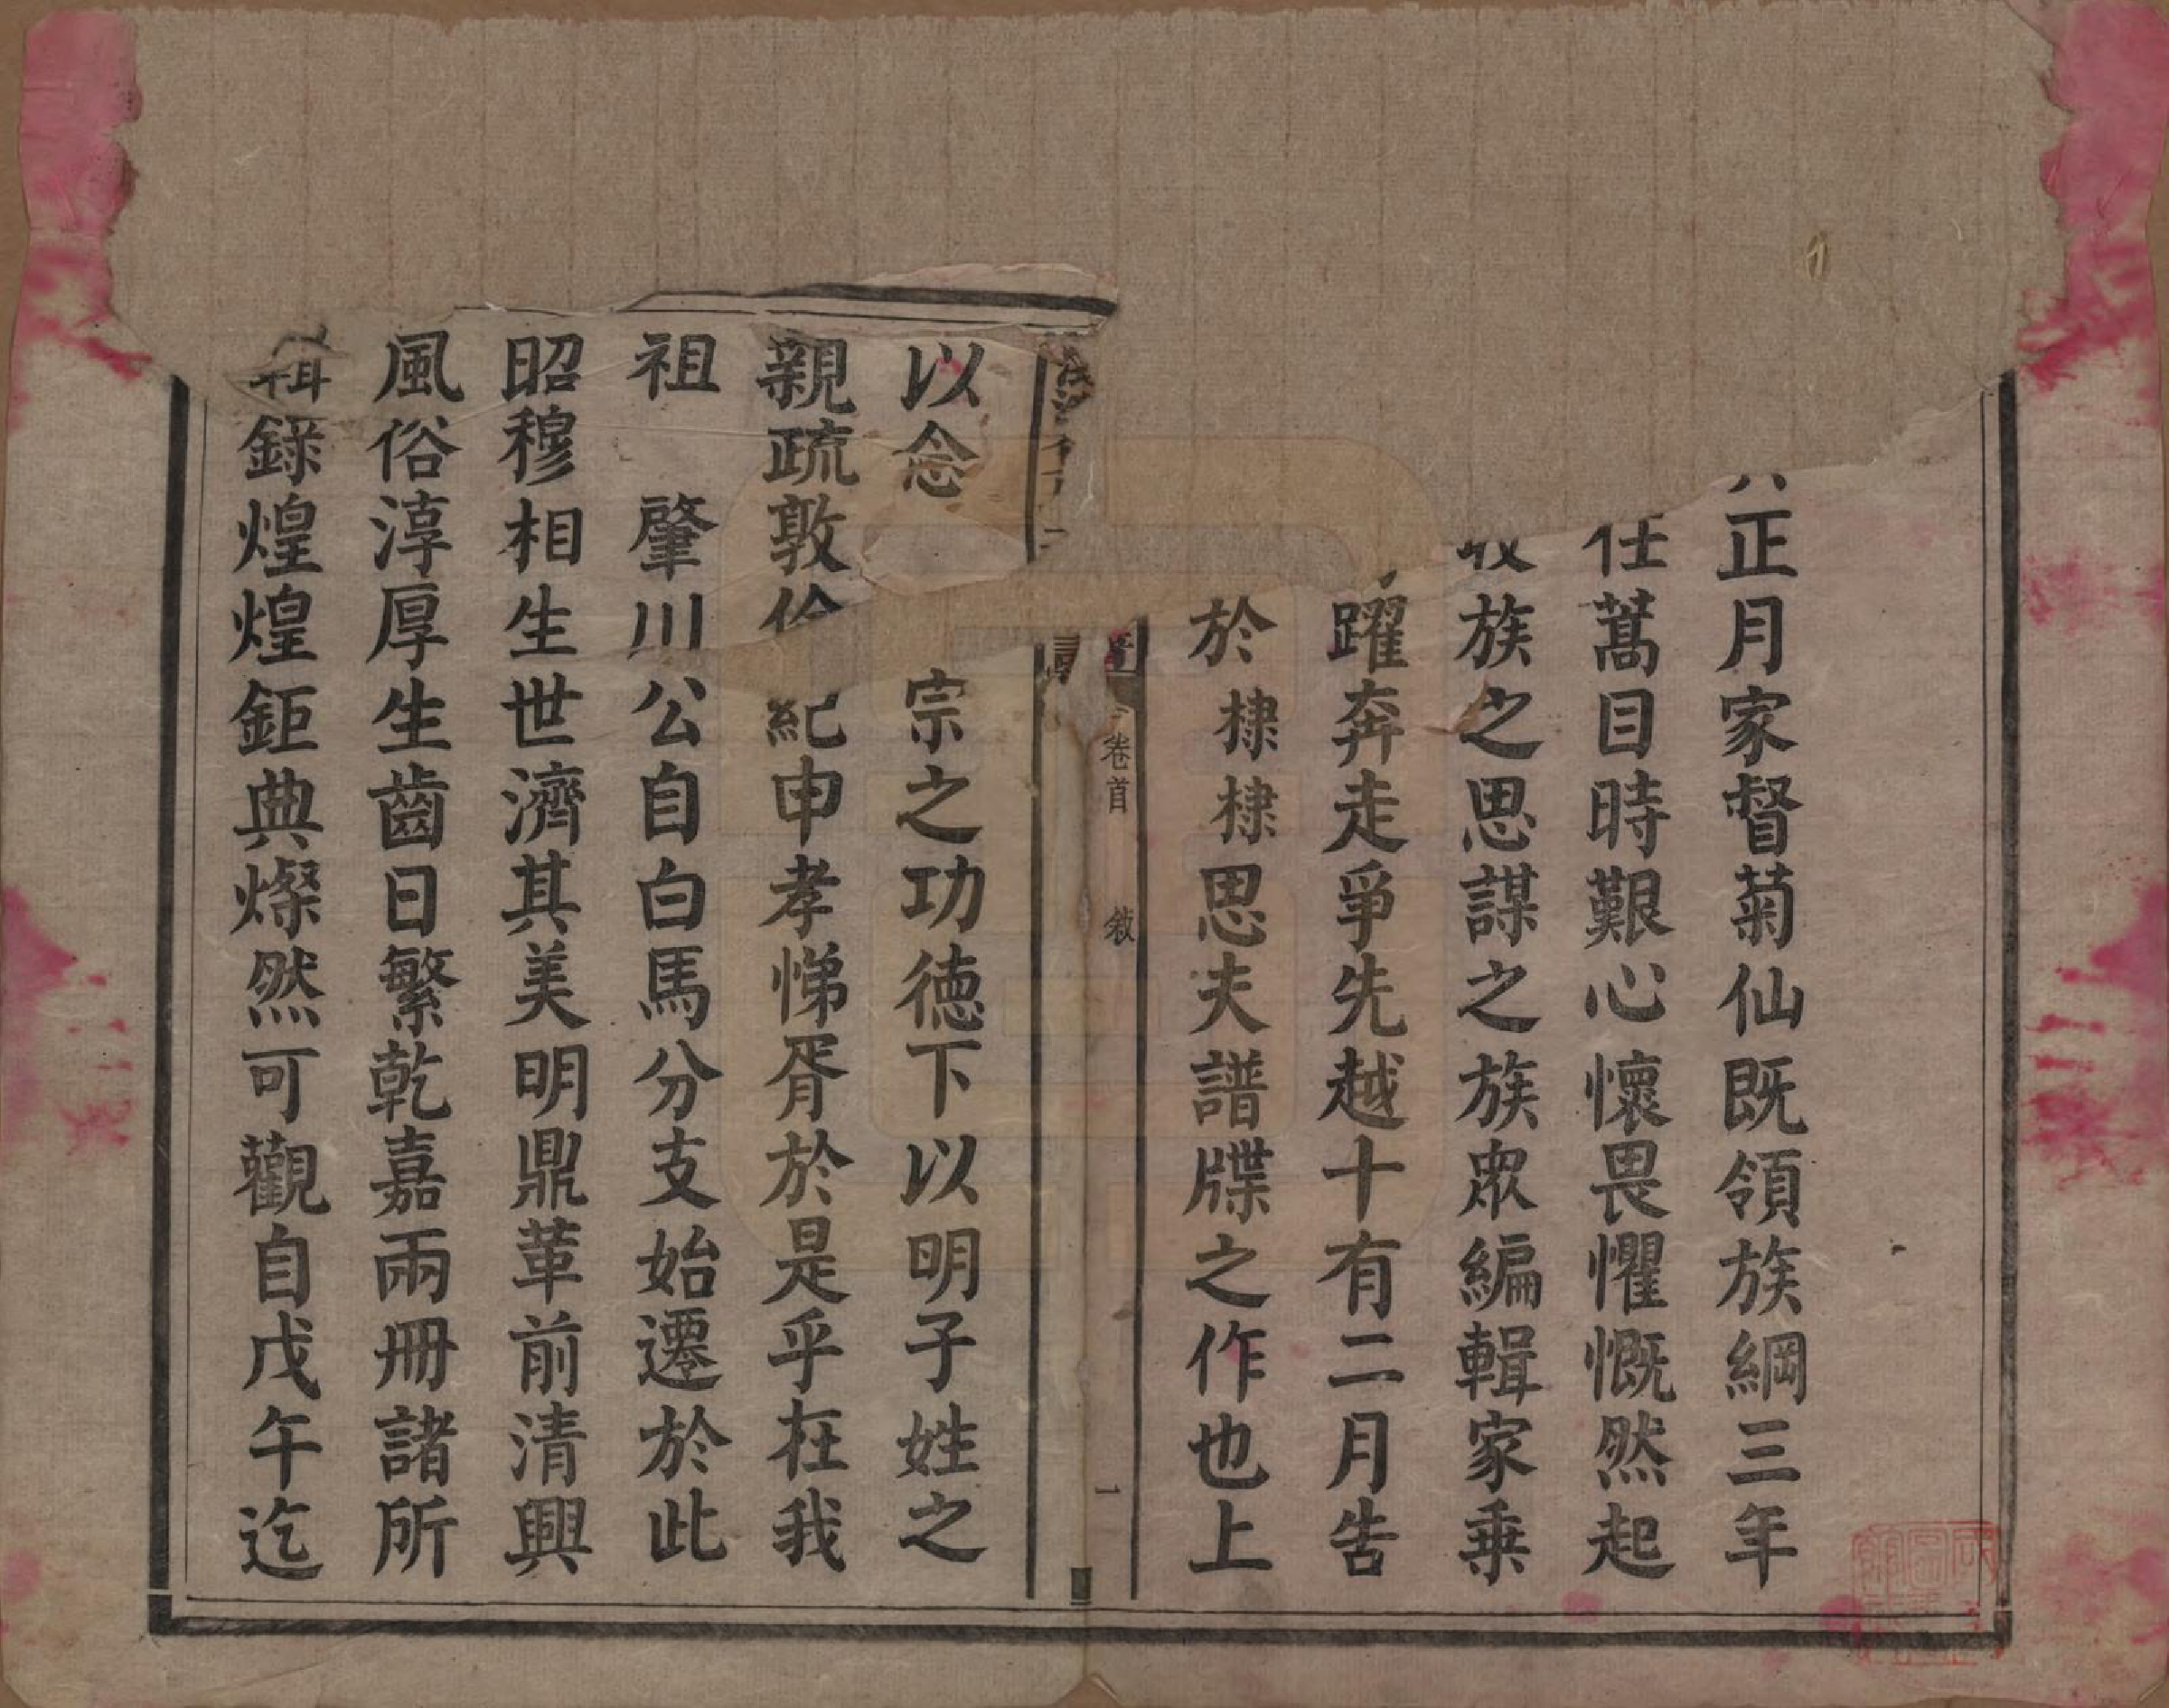 正月家督菊仙既領族綱三年
任蒿目時艱心懷畏懼慨然起
收族之思謀之族眾編輯家乗
躍奔走爭先越十有二月告
於棣棣思夫譜牒之作也上
卷首 敘 一
以念 宗之功徳下以明子姓之
親疏敦倫紀申孝悌胥於是乎在我
祖 肇川公自白馬分支始遷於此
昭穆相生世濟其美明鼎革前清興
風俗淳厚生齒日繁乾嘉兩冊諸所
輯錄煌煌鉅典燦然可觀自戊午迄